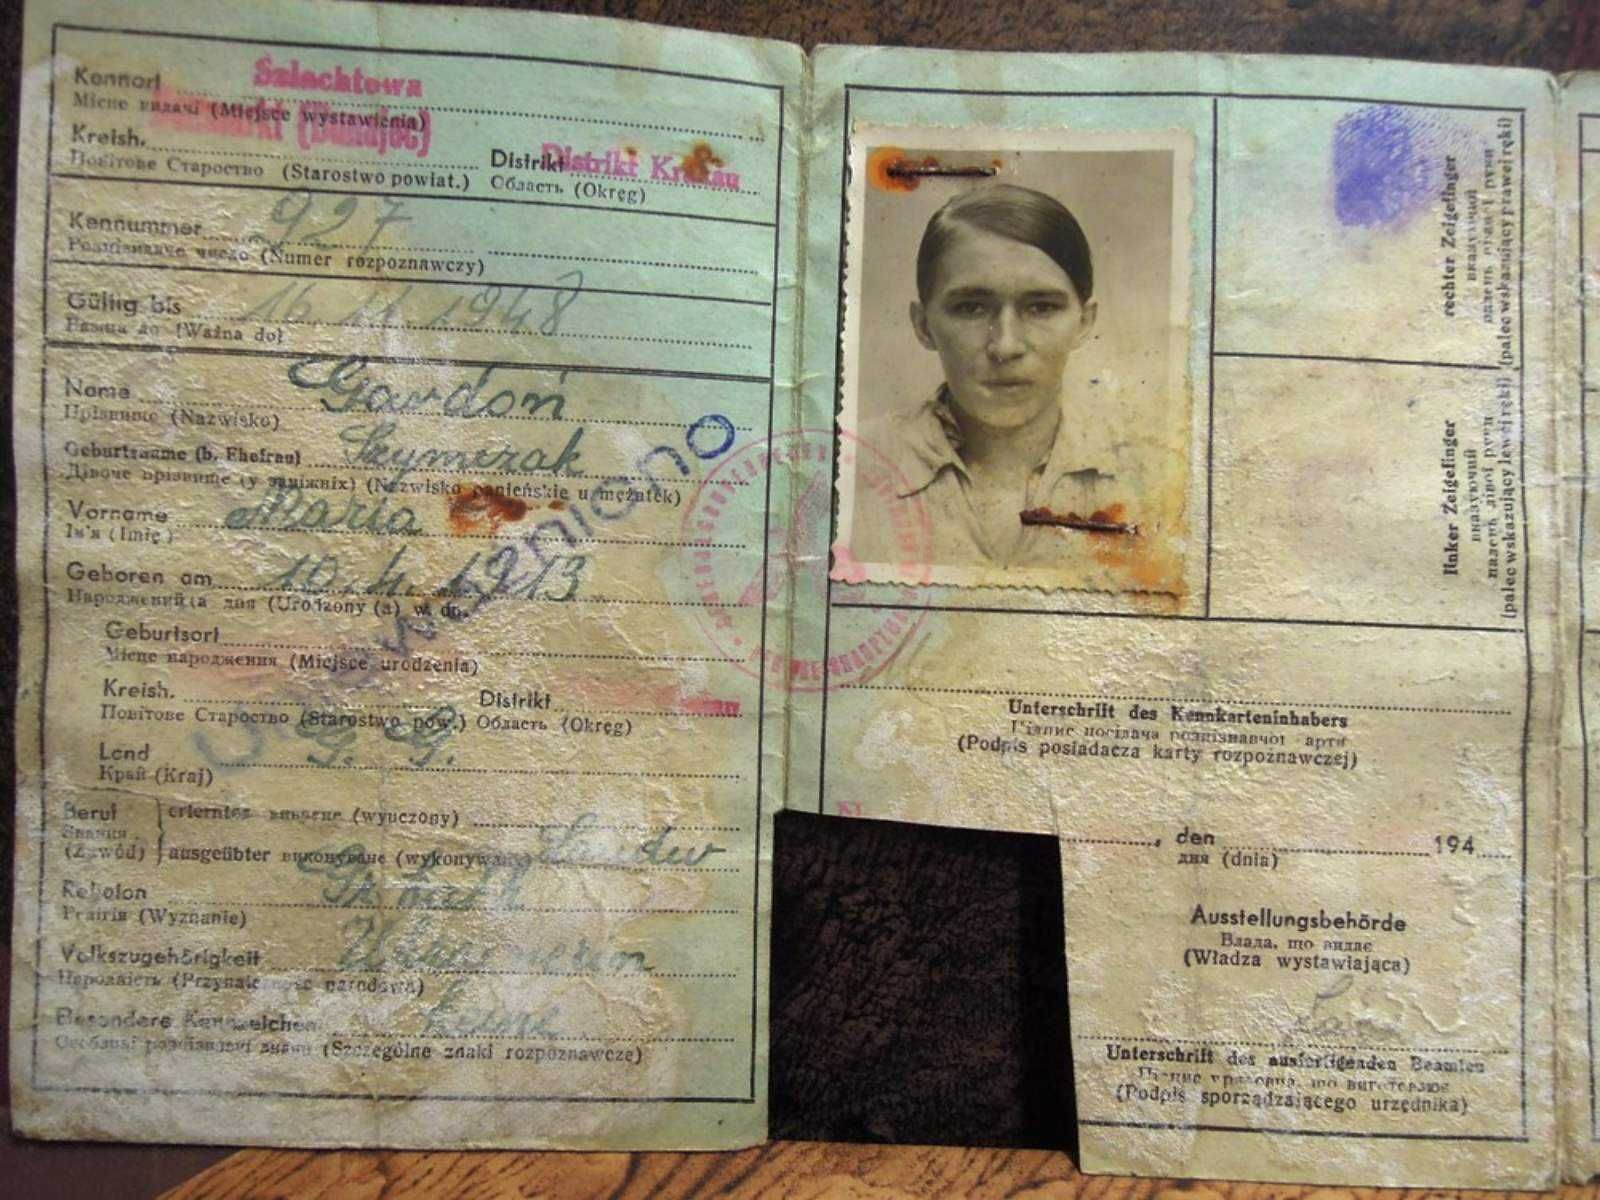 Kennort Szlachtowa
Місце видачі (Miejsce wystawienia)
Kreish.
Distrikt Distrikt Krakau
Повітове Староство (Starostwo powiat.) Область (Okręg)
Kennummer 927
Розпізнавче число (Numer rozpoznawczy)
Gültig bis 1948
Важна до (Ważna do)
Name Gawdoń
Прізвище (Nazwisko)
Geburtsname (b. Ehefrau) Szymczak
Дівоче прізвище (у заміжніх) (Nazwisko panieńskie u mężatek)
Vorname Maria
Ім'я (Imię)
Geboren am 10. 4. 1913
Народжений(а) дня (Urodzony (a) w dn.
Unieważniono
Geburtsort
Місце народження (Miejsce urodzenia)
Kreish. Distrikt
Повітове Староство (Starostwo pow.) Область (Okręg)
Land G. G.
Край (Kraj)
Beruf erlerntes вивчене (wyuczony)
Звання
(Zawód) ausgeübter виконуване (wykonywany) Landw
Religion
(Wyznanie)
Volkszugehörigkeit Ukrainerin
Народність (Przynależność narodowa)
Besondere Kennzeichen keine
Особливі розпізнавчі знаки (Szczególne znaki rozpoznawcze)
rechter Zeigefinger
вказуючий
палець правої руки
(palec wskazujący prawej ręki)
linker Zeigefinger
вказуючий
палець лівої руки
(palec wskazujący lewej ręki)
Unterschrift des Kennkarteninhabers
Підпис посідача розпізнавчої карти
(Podpis posiadacza karty rozpoznawczej)
, den 194
дня (dnia)
Ausstellungsbehörde
Влада, що видає
(Władza wystawiająca)
Unterschrift des ausfertigenden Beamten
Підпис урядовця, що виготовлює
(Podpis sporządzającego urzędnika)